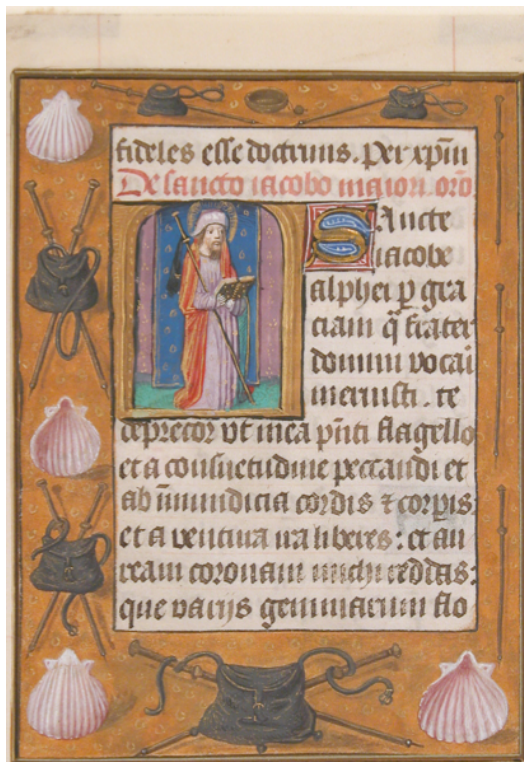 fideles esse doctrinis. Per xp̄m
De sancto iacobo maiori. orō.
Sancte
iacobe
alphei p̱ gra
ciam q̄ frater
domini vocari
meruisti. te
deprecor vt mea p̄nti flagello
et a consuetudine peccandi et
ab īmundicia cordis ⁊ corꝑis
et a ventura ira liberes: et au
ream coronam michi reddas:
que varijs gemmarum flo